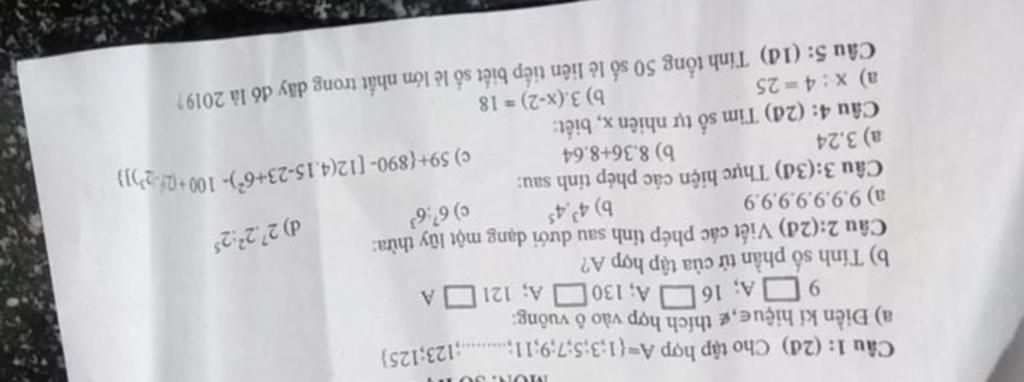 Câu 1: (2đ) Cho tập hợp A={1;3;5;7;9;11;.........;123;125}
a) Điền kí hiệu∈,∉ thích hợp vào ô vuông:
9 □ A; 16 □ A; 130 □ A; 121 □ A
b) Tính số phần tử của tập hợp A?
Câu 2:(2đ) Viết các phép tính sau dưới dạng một lũy thừa:
a) 9.9.9.9.9.9.9 b) 4³.4⁵ c) 6⁷:6³ d) 2⁷.2²:2⁵
Câu 3:(3đ) Thực hiện các phép tính sau:
a) 3.24 b) 8.36+8.64 c) 59+{890- [12(4.15-23+6²)- 100+
Câu 4: (2đ) Tìm số tự nhiên x, biết:
a) x : 4 = 25 b) 3.(x-2) = 18
Câu 5: (1đ) Tính tổng 50 số lẻ liên tiếp biết số lẻ lớn nhất trong dãy đó là 2019?